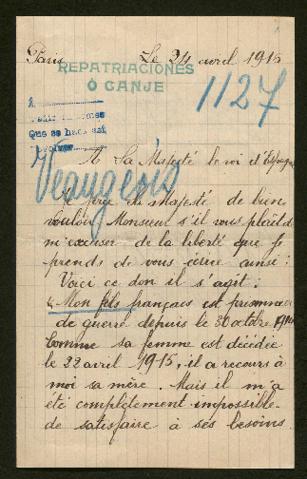 Paris Le 24 avril 1915
REPATRIACIONES
Ó CANJE
1127
Que se hace así
Veaugeois
A Sa Majesté le roi d'Espagne
Je prie sa majesté de bien
vouloir Monsieur s'il vous plait de
m'excuser de la liberté que je
prends de vous écrire ainsi :
Voici ce don il s'agit :
Mon fils français est prisonnier
de guerre depuis le 30 octobre 1914
Comme sa femme est décédée
le 22 avril 1915, il a recours à
moi sa mère. Mais il m'a
été complètement impossible
de satisfaire à ses besoins